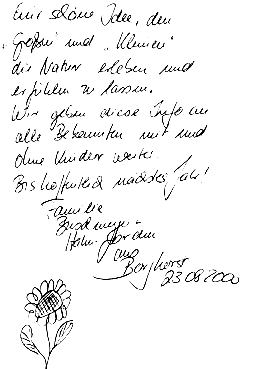 Eine schöne Idee, den
"Großen" und "Kleinen"
die Natur erleben und
erfühlen zu lassen.
Wir geben diese Info an
alle Bekannten mit und
ohne Kinder weiter.
Bis hoffentlich nächstes Jahr!
Familie
aus
Borghorst
23.08.2000